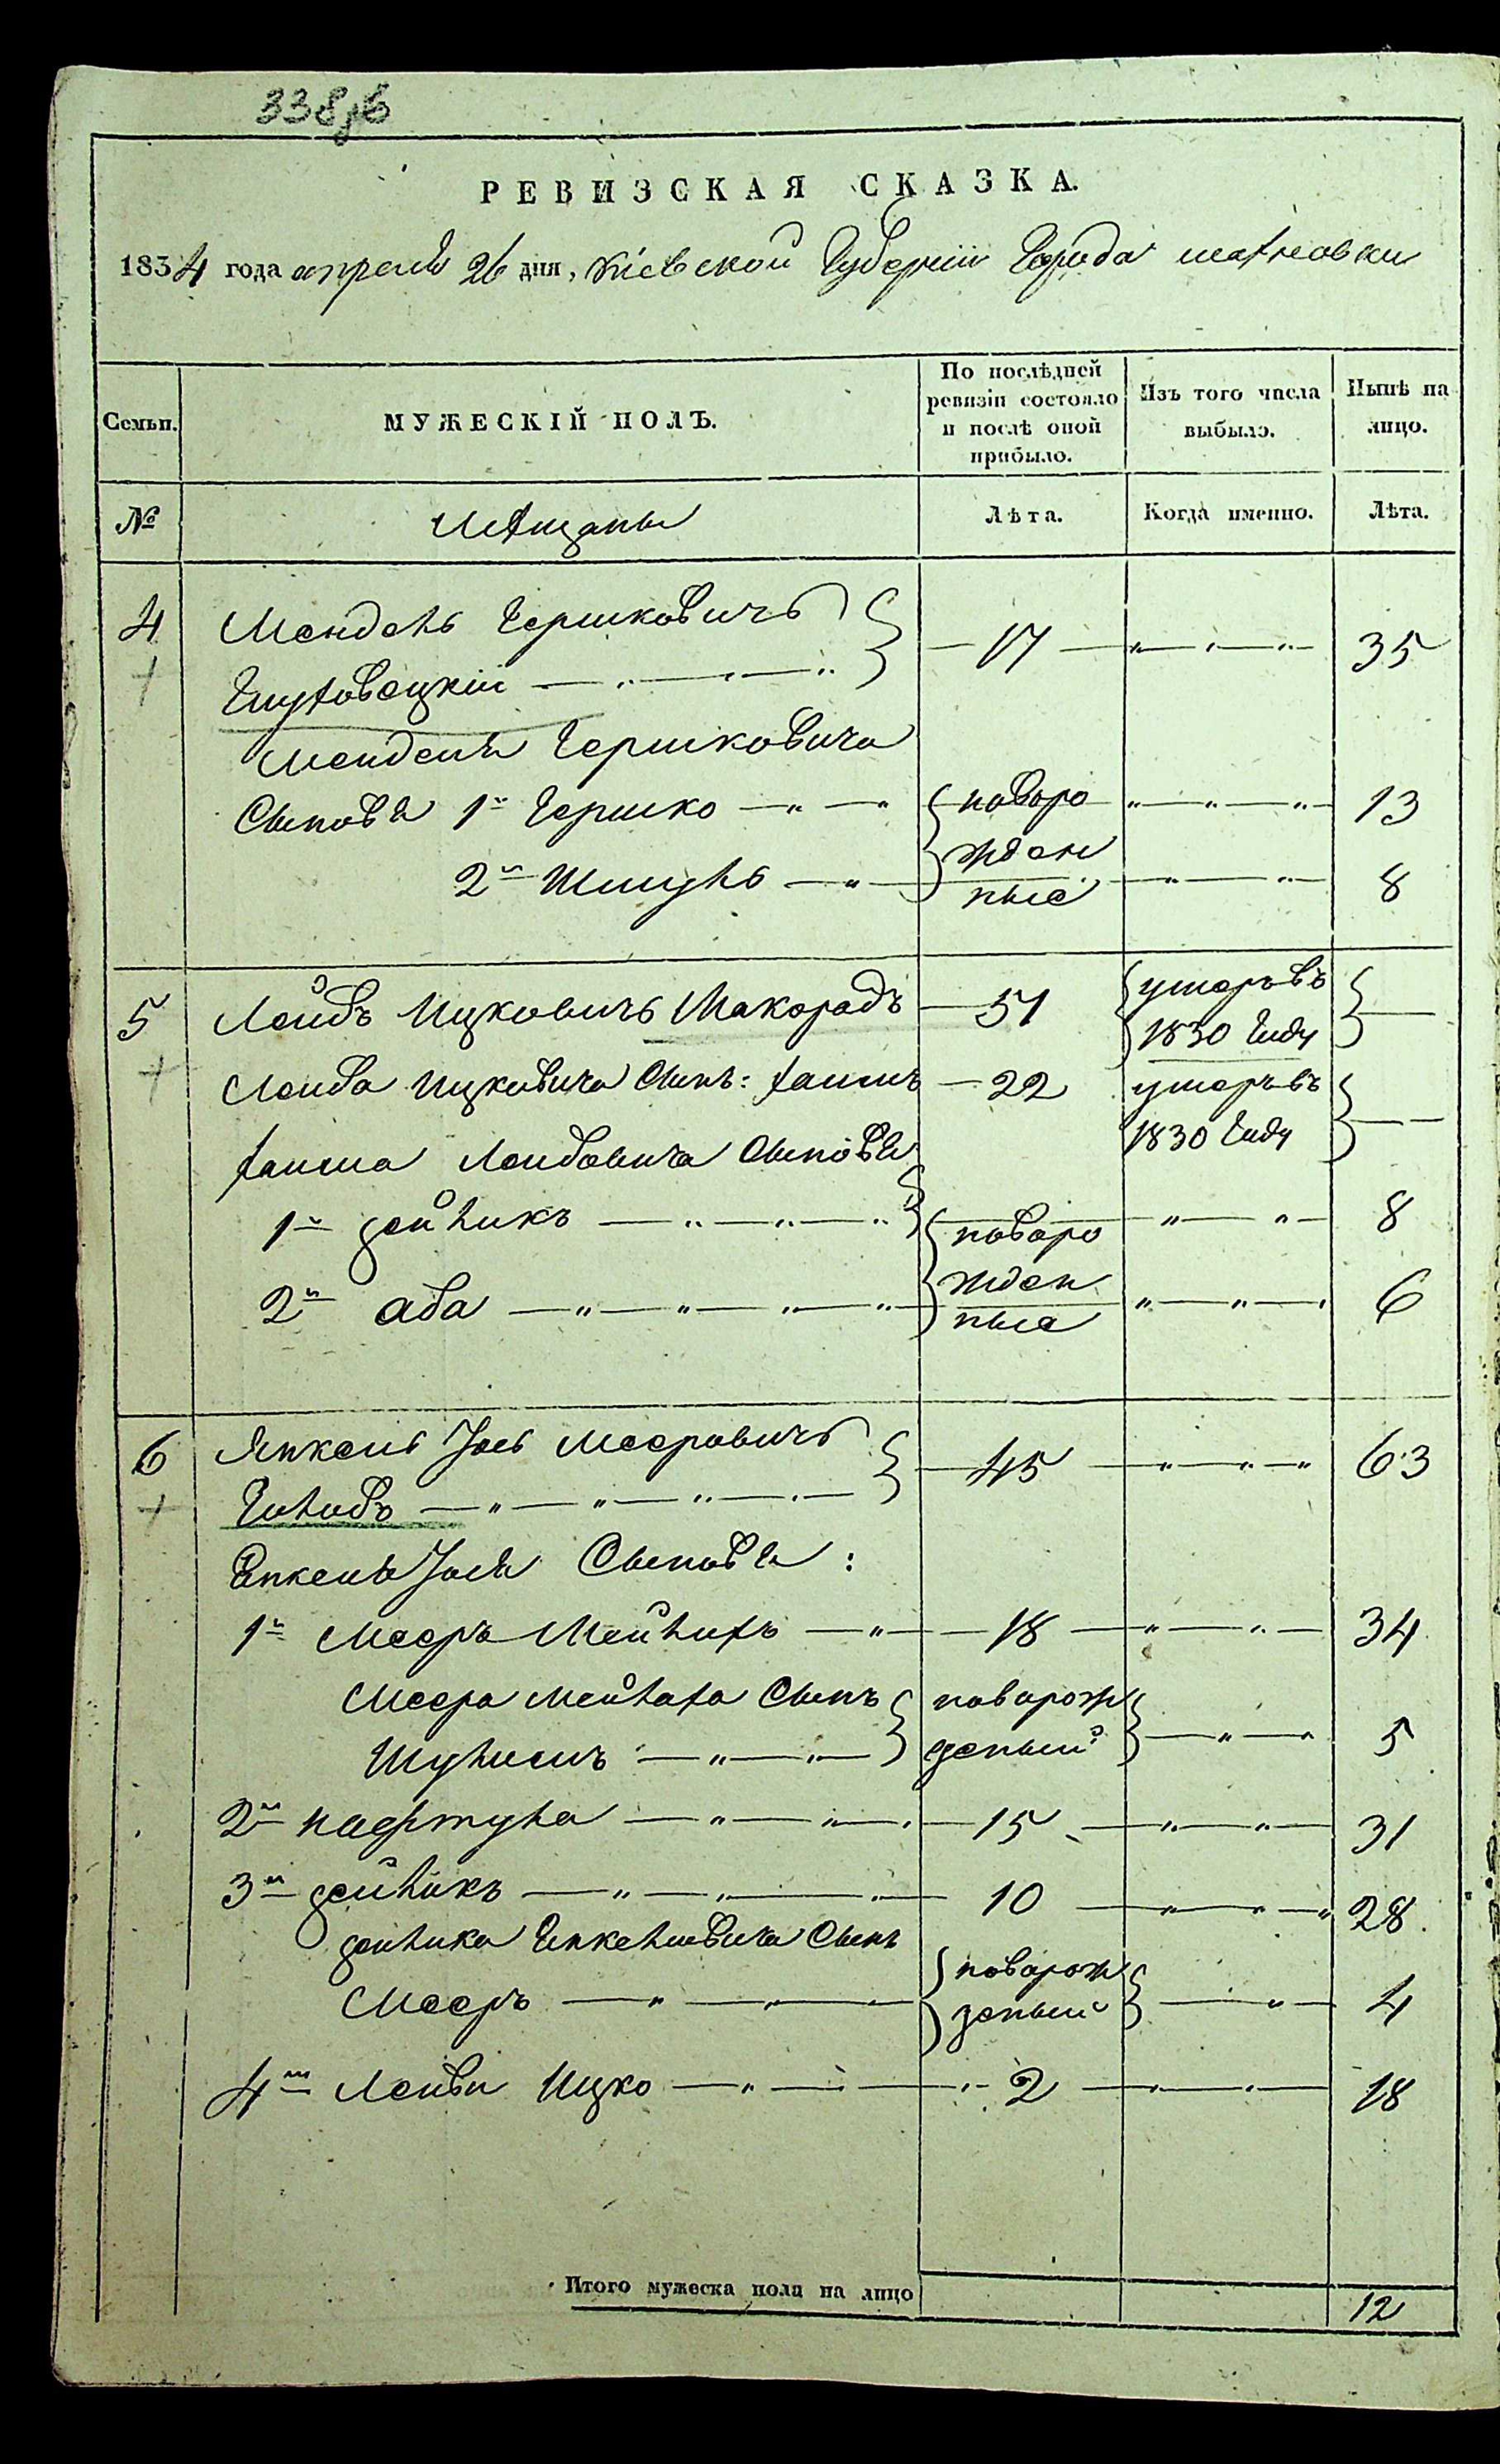 338об
РЕВИЗСКАЯ СКАЗКА.
1834 года апреля 26 дня, Кіевской Губерніи Города
Семьи. МУЖЕСКІЙ ПОЛЪ. По послѣдней ревизіи состояло и послѣ оной прибыло. Изъ того числа выбыло. Нынѣ на лицо.
№ Мѣщаны Лѣта. Когда именно. Лѣта.
4 Мендель Гершковичъ
Глуховецкіи 17 35
Менделя Гершковича
Сыновья 1й Гершко новоро 13
2й Шмуль жден ные 8
5 Лейбъ Ицковичъ Макорадъ 51 умеръ въ 1830 Году
Лейба Ицковича Сынъ: Хаимъ 22 умеръ въ 1830 Году
Хаима Лейбовича Сыновья
1й зейликъ новоро 8
2й аба жден ные 6
6 Янкель Іось Мееровичъ
Голубъ 45 63
Енкеля Іося Сыновья:
1й Мееръ Мейлахъ 18 34
Меера Мейлаха Сынъ новорож
Шулимъ деный 5
2й нафтула 15 31
3й зейликъ 10 28
зейлика Енкелiовича Сынъ
Мееръ новорож деный 4
4й Лейби Ицко 2 18
Итого мужеска пола на лицо 12